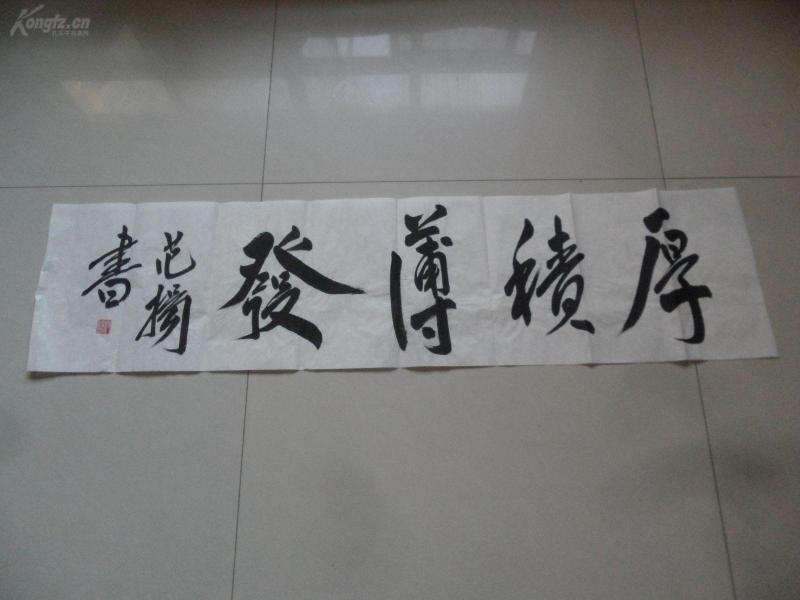 厚積薄發
范
書
Kongfz.cn
孔夫子旧书网